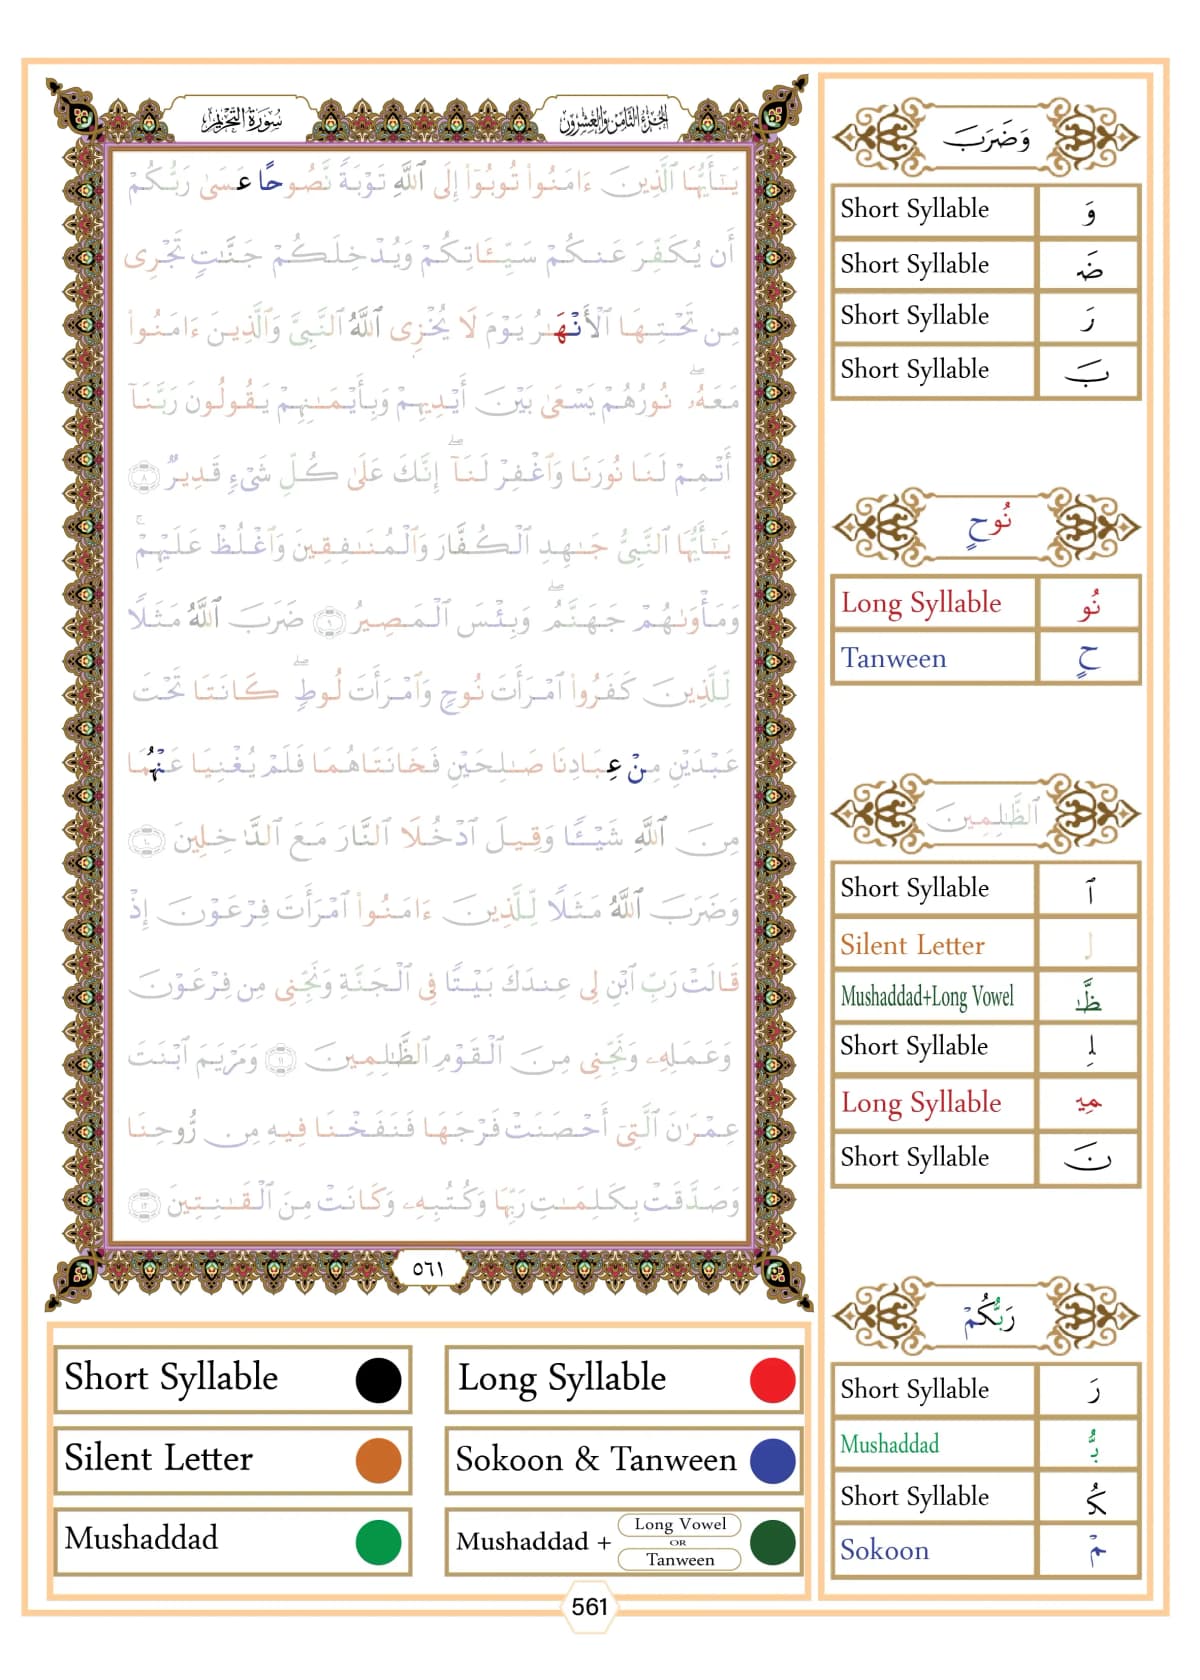 سُورَةُ التَّحْرِيمِ
الجُزْءُ الثَّامِنُ وَالعِشْرُونَ
يَـٰٓأَيُّهَا ٱلَّذِينَ ءَامَنُوا۟ تُوبُوٓا۟ إِلَى ٱللَّهِ تَوْبَةً نَّصُوحًا عَسَىٰ رَبُّكُمْ
أَن يُكَفِّرَ عَنكُمْ سَيِّـَٔاتِكُمْ وَيُدْخِلَكُمْ جَنَّـٰتٍ تَجْرِى
مِن تَحْتِهَا ٱلْأَنْهَـٰرُ يَوْمَ لَا يُخْزِى ٱللَّهُ ٱلنَّبِىَّ وَٱلَّذِينَ ءَامَنُوا۟
مَعَهُۥ ۖ نُورُهُمْ يَسْعَىٰ بَيْنَ أَيْدِيهِمْ وَبِأَيْمَـٰنِهِمْ يَقُولُونَ رَبَّنَآ
أَتْمِمْ لَنَا نُورَنَا وَٱغْفِرْ لَنَآ ۖ إِنَّكَ عَلَىٰ كُلِّ شَىْءٍ قَدِيرٌ ٨
يَـٰٓأَيُّهَا ٱلنَّبِىُّ جَـٰهِدِ ٱلْكُفَّارَ وَٱلْمُنَـٰفِقِينَ وَٱغْلُظْ عَلَيْهِمْ ۚ
وَمَأْوَىٰهُمْ جَهَنَّمُ ۖ وَبِئْسَ ٱلْمَصِيرُ ٩ ضَرَبَ ٱللَّهُ مَثَلًا
لِّلَّذِينَ كَفَرُوا۟ ٱمْرَأَتَ نُوحٍ وَٱمْرَأَتَ لُوطٍ ۖ كَانَتَا تَحْتَ
عَبْدَيْنِ مِنْ عِبَادِنَا صَـٰلِحَيْنِ فَخَانَتَاهُمَا فَلَمْ يُغْنِيَا عَنْهُمَا
مِنَ ٱللَّهِ شَيْـًٔا وَقِيلَ ٱدْخُلَا ٱلنَّارَ مَعَ ٱلدَّٰخِلِينَ ١٠
وَضَرَبَ ٱللَّهُ مَثَلًا لِّلَّذِينَ ءَامَنُوا۟ ٱمْرَأَتَ فِرْعَوْنَ إِذْ
قَالَتْ رَبِّ ٱبْنِ لِى عِندَكَ بَيْتًا فِى ٱلْجَنَّةِ وَنَجِّنِى مِن فِرْعَوْنَ
وَعَمَلِهِۦ وَنَجِّنِى مِنَ ٱلْقَوْمِ ٱلظَّـٰلِمِينَ ١١ وَمَرْيَمَ ٱبْنَتَ
عِمْرَٰنَ ٱلَّتِىٓ أَحْصَنَتْ فَرْجَهَا فَنَفَخْنَا فِيهِ مِن رُّوحِنَا
وَصَدَّقَتْ بِكَلِمَـٰتِ رَبِّهَا وَكُتُبِهِۦ وَكَانَتْ مِنَ ٱلْقَـٰنِتِينَ ١٢
٥٦١
وَضَرَبَ
Short Syllable وَ
Short Syllable ضَ
Short Syllable رَ
Short Syllable بَ
نُوحٍ
Long Syllable نُو
Tanween حٍ
ٱلظَّـٰلِمِينَ
Short Syllable ٱ
Silent Letter ل
Mushaddad+Long Vowel ظَّـٰ
Short Syllable لِ
Long Syllable مِيـ
Short Syllable نَ
رَبُّكُمْ
Short Syllable رَ
Mushaddad بُّ
Short Syllable كُ
Sokoon مْ
Short Syllable
Long Syllable
Silent Letter
Sokoon & Tanween
Mushaddad
Mushaddad + Long Vowel OR Tanween
561